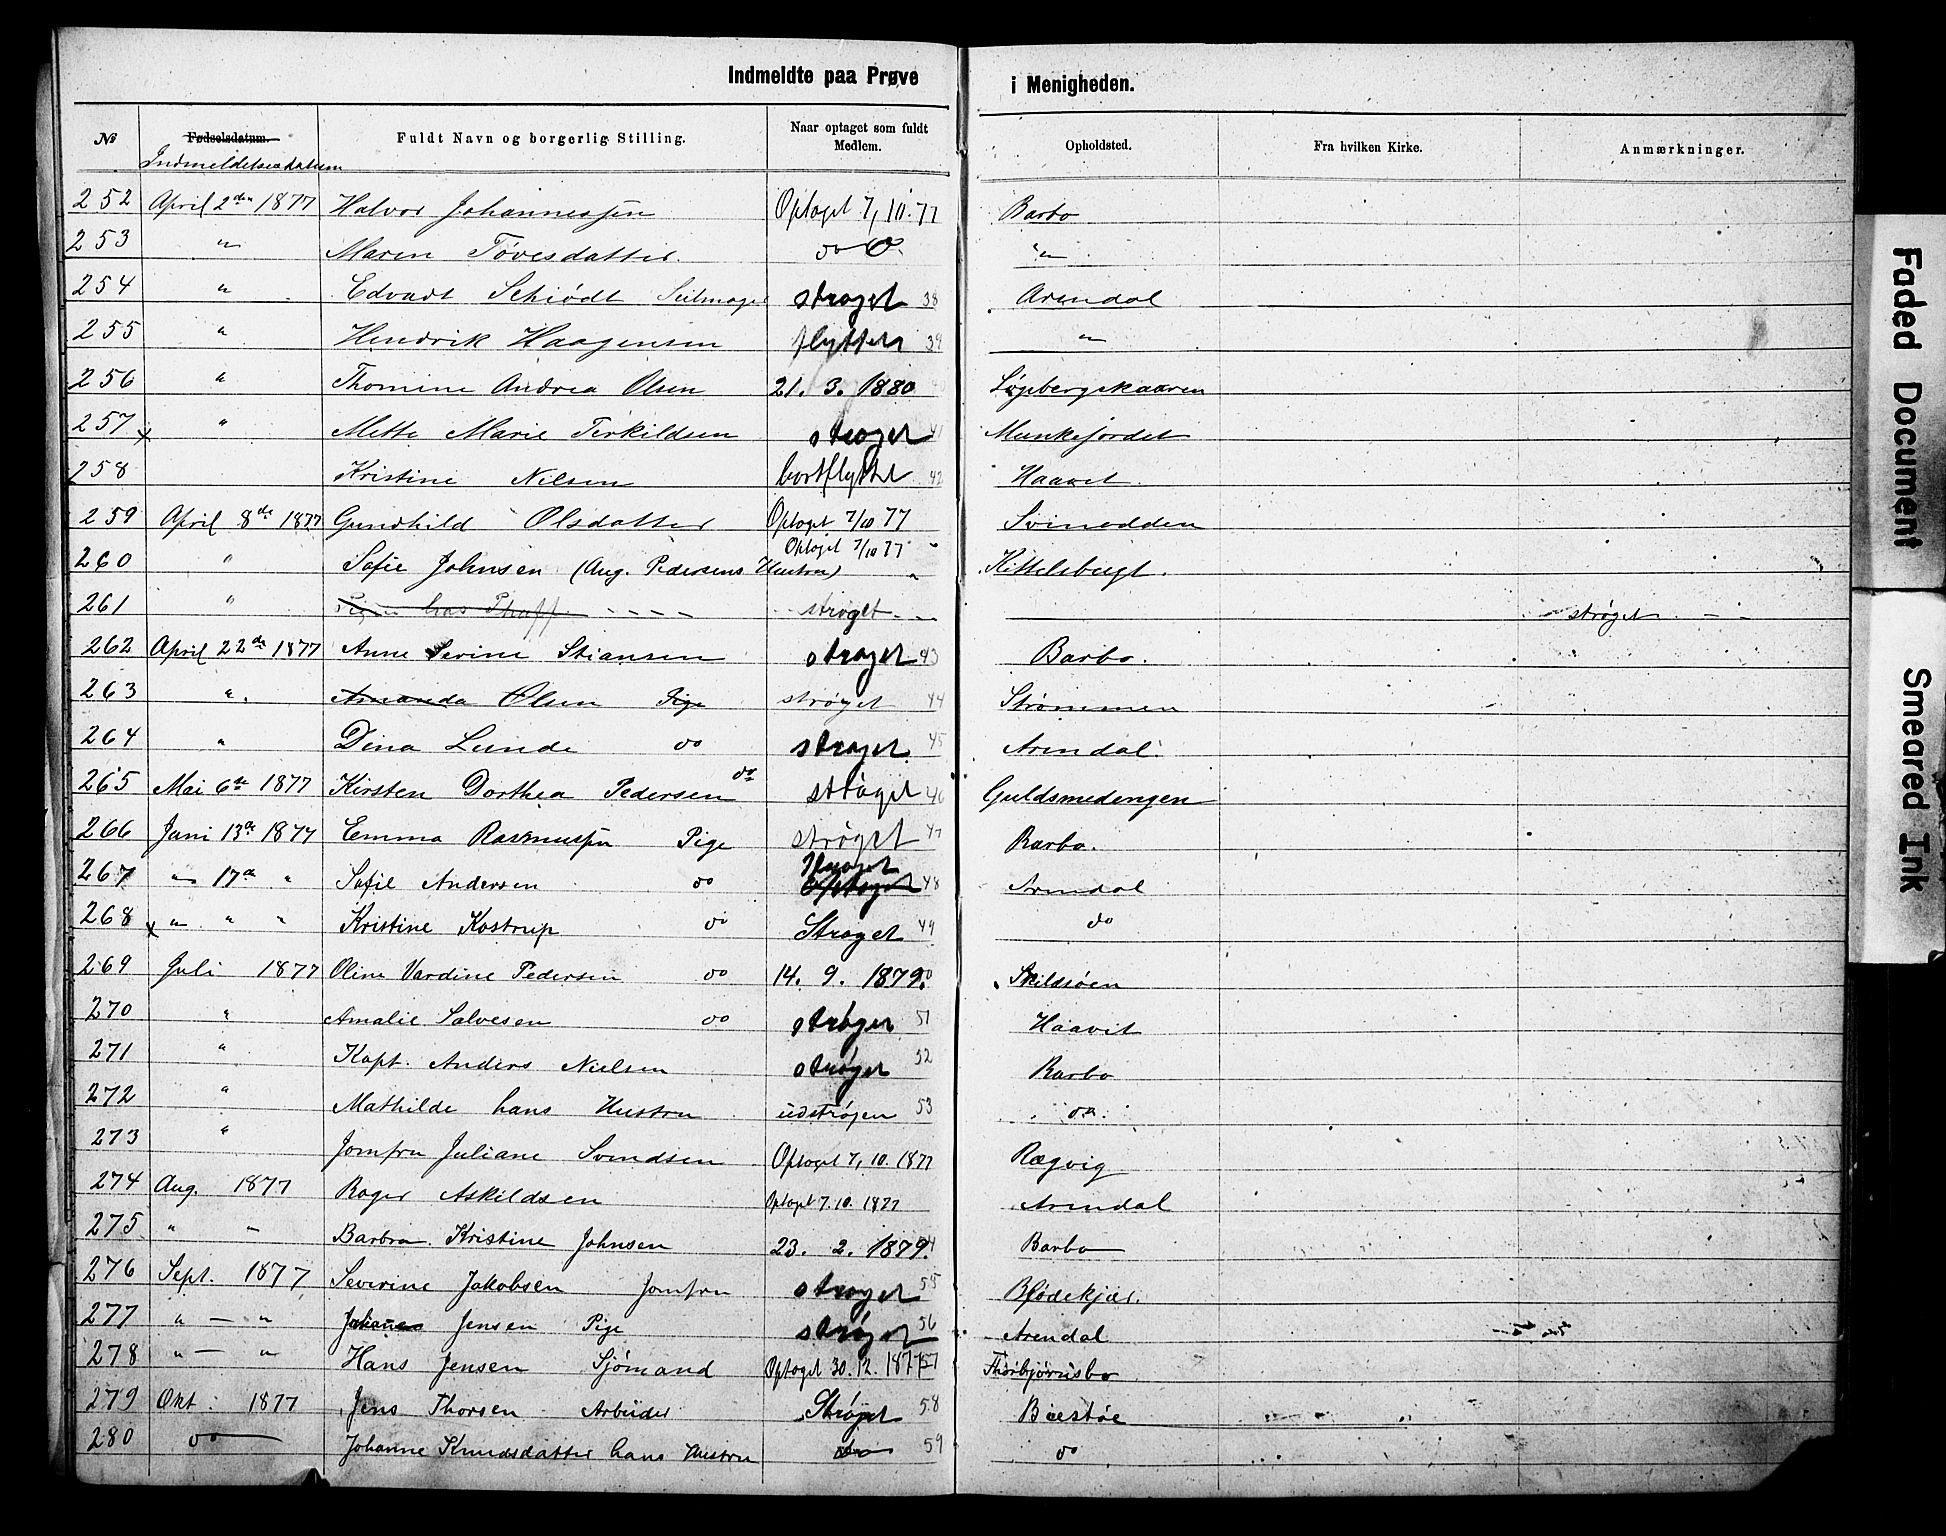 Indmeldte paa Prøve i Menigheden.
№ Fødselsdatum. Fuldt Navn og borgerlig Stilling. Naar optaget som fuldt Medlem. Opholdsted. Fra hvilken Kirke. Anmærkninger.
Indmeldelsesdatum
252 April 2den 1877 Halvor Johannessen Optaget 7, 10. 77 Barbo
253 " Maren Tovesdatter do "
254 " Edvadt Schiødt Seilmager strøget 38 Arendal
255 " Hendrik Haagensen flyttet 39 "
256 " Thomine Andrea Olsen 21. 3. 1880 Løgbergskaaren
257 " Mette Marie Terkildsen strøget 41 Munkejordet
258 Kristine Nilsen bortflyttet 42 Haavet
259 April 8de 1877 Gundhild Olsdatter Optaget 7/10 77 Svinodden
260 " Sofie Johnsen (Aug. Pedersens Hustru) Optaget 7/10 77 " Kittelsbugt.
261 " strøget strøget
262 April 22de 1877 Anne Sevine Stiansen strøget 43 Barbo.
263 " Amanda Olsen Pige strøget 44 Strømmen
264 " Dina Lunde do strøget 45 Arendal
265 Mai 6te 1877 Kirsten Dorthea Pedersen do strøget 46 Guldsmedengen
266 Juni 13de 1877 Emma Rasmussen Pige strøget 47 Barbo.
267 " 17de " Sofie Andersen do Strøget 48 Arendal
268 " " " Kristine Kostrup do Strøget 49 do
269 Juli 1877 Oline Vardine Pedersen do 14. 9. 1879. 50 Skildsøen
270 " Amalie Salvesen do strøget 51 Haavet
271 " Kapt. Anders Nielsen strøget 52 Barbo
272 " Mathilde hans Hustru udstrøgen 53 do.
273 " Jomfru Juliane Svendsen Optaget 7, 10. 1877 Rægvig
274 Aug. 1877 Roger Askildsen Optaget 7. 10. 1877 Arendal
275 " " Barbra Kristine Johnsen 23. 2. 1879. 54 Barbo
276 Sept. 1877 Severine Jakobsen Jomfru strøget 55 Blødekjær.
277 " — " Jensen Pige strøget 56 Arendal
278 " — " Hans Jensen Sjömand Optaget 30. 12. 1877 57 Thorbjørnsbo
279 Okt. 1877 Jens Thorsen Arbeider Strøget 58 Biestøe
280 do Johanne Knudsdatter hans Hustru do 59 do
Faded Document
Smeared Ink